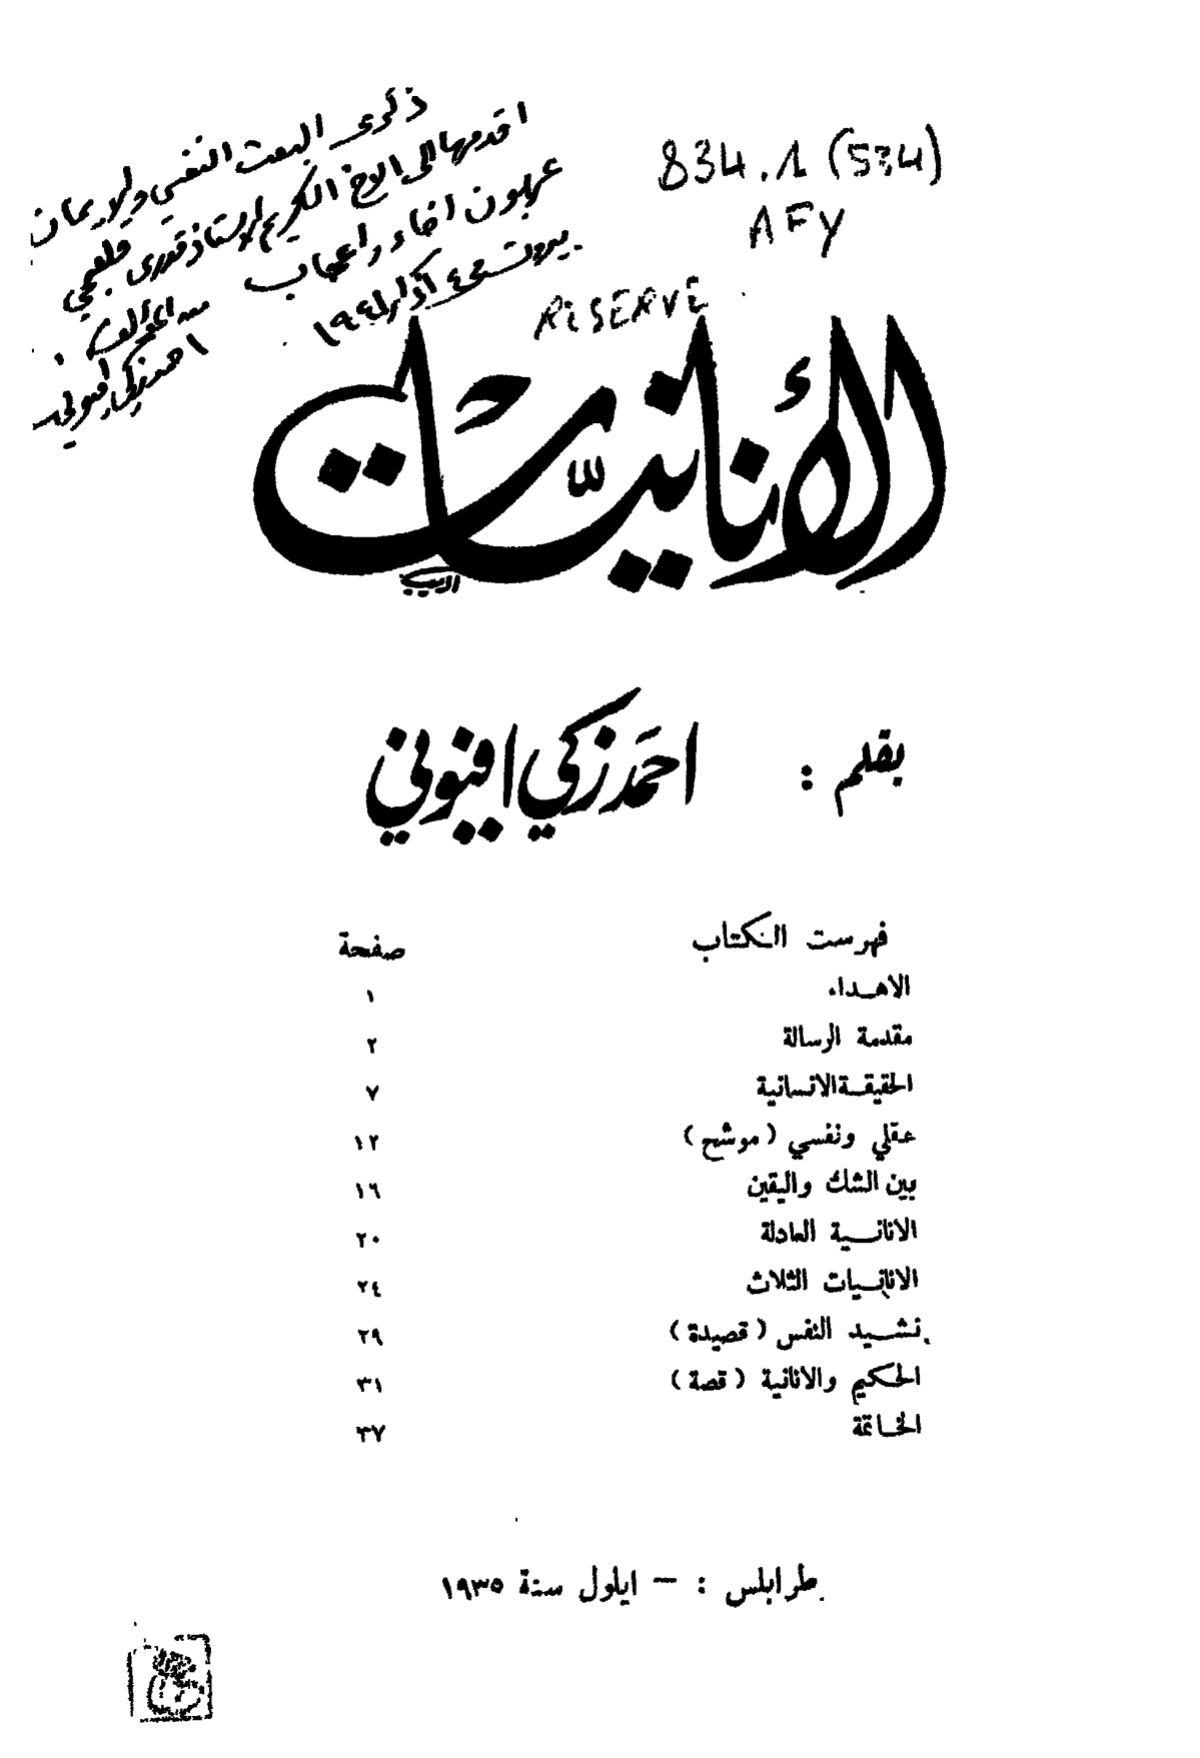 ذكرى البعث النفسي والايمان
اقدمها الى الاخ الكريم الاستاذ قدري قلعجي
عربون اخاء واعجاب
بيروت في ٤ آذار ١٩٤١
من المؤلف
احمد زكي افيوني
834.1 (534)
AFY
RISERVE
الأنانيّات
بقلم : احمد زكي افيوني
فهرست الكتاب صفحة
الاهداء ١
مقدمة الرسالة ٢
الحقيقة الانسانية ٧
عقلي ونفسي (موشح) ١٢
بين الشك واليقين ١٦
الانانية العادلة ٢٠
الانانيات الثلاث ٢٤
نشيد النفس (قصيدة) ٢٩
الحكيم والانانية (قصة) ٣١
الخاتمة ٣٧
طرابلس : — ايلول سنة ١٩٣٥